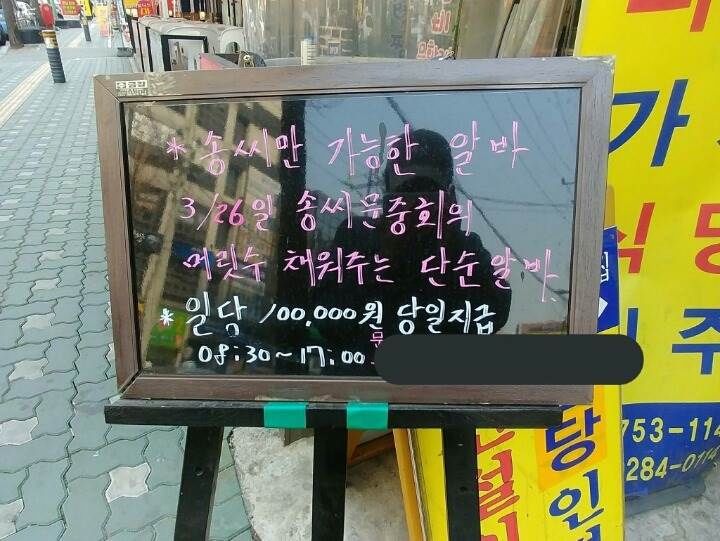 * 송씨만 가능한 알바
3/26일 송씨문중회의
머릿수 채워주는 단순알바
* 일당 100,000원 당일지급
08:30~17:00 문
가
식당
주
753-114
284-0114
당
인
설